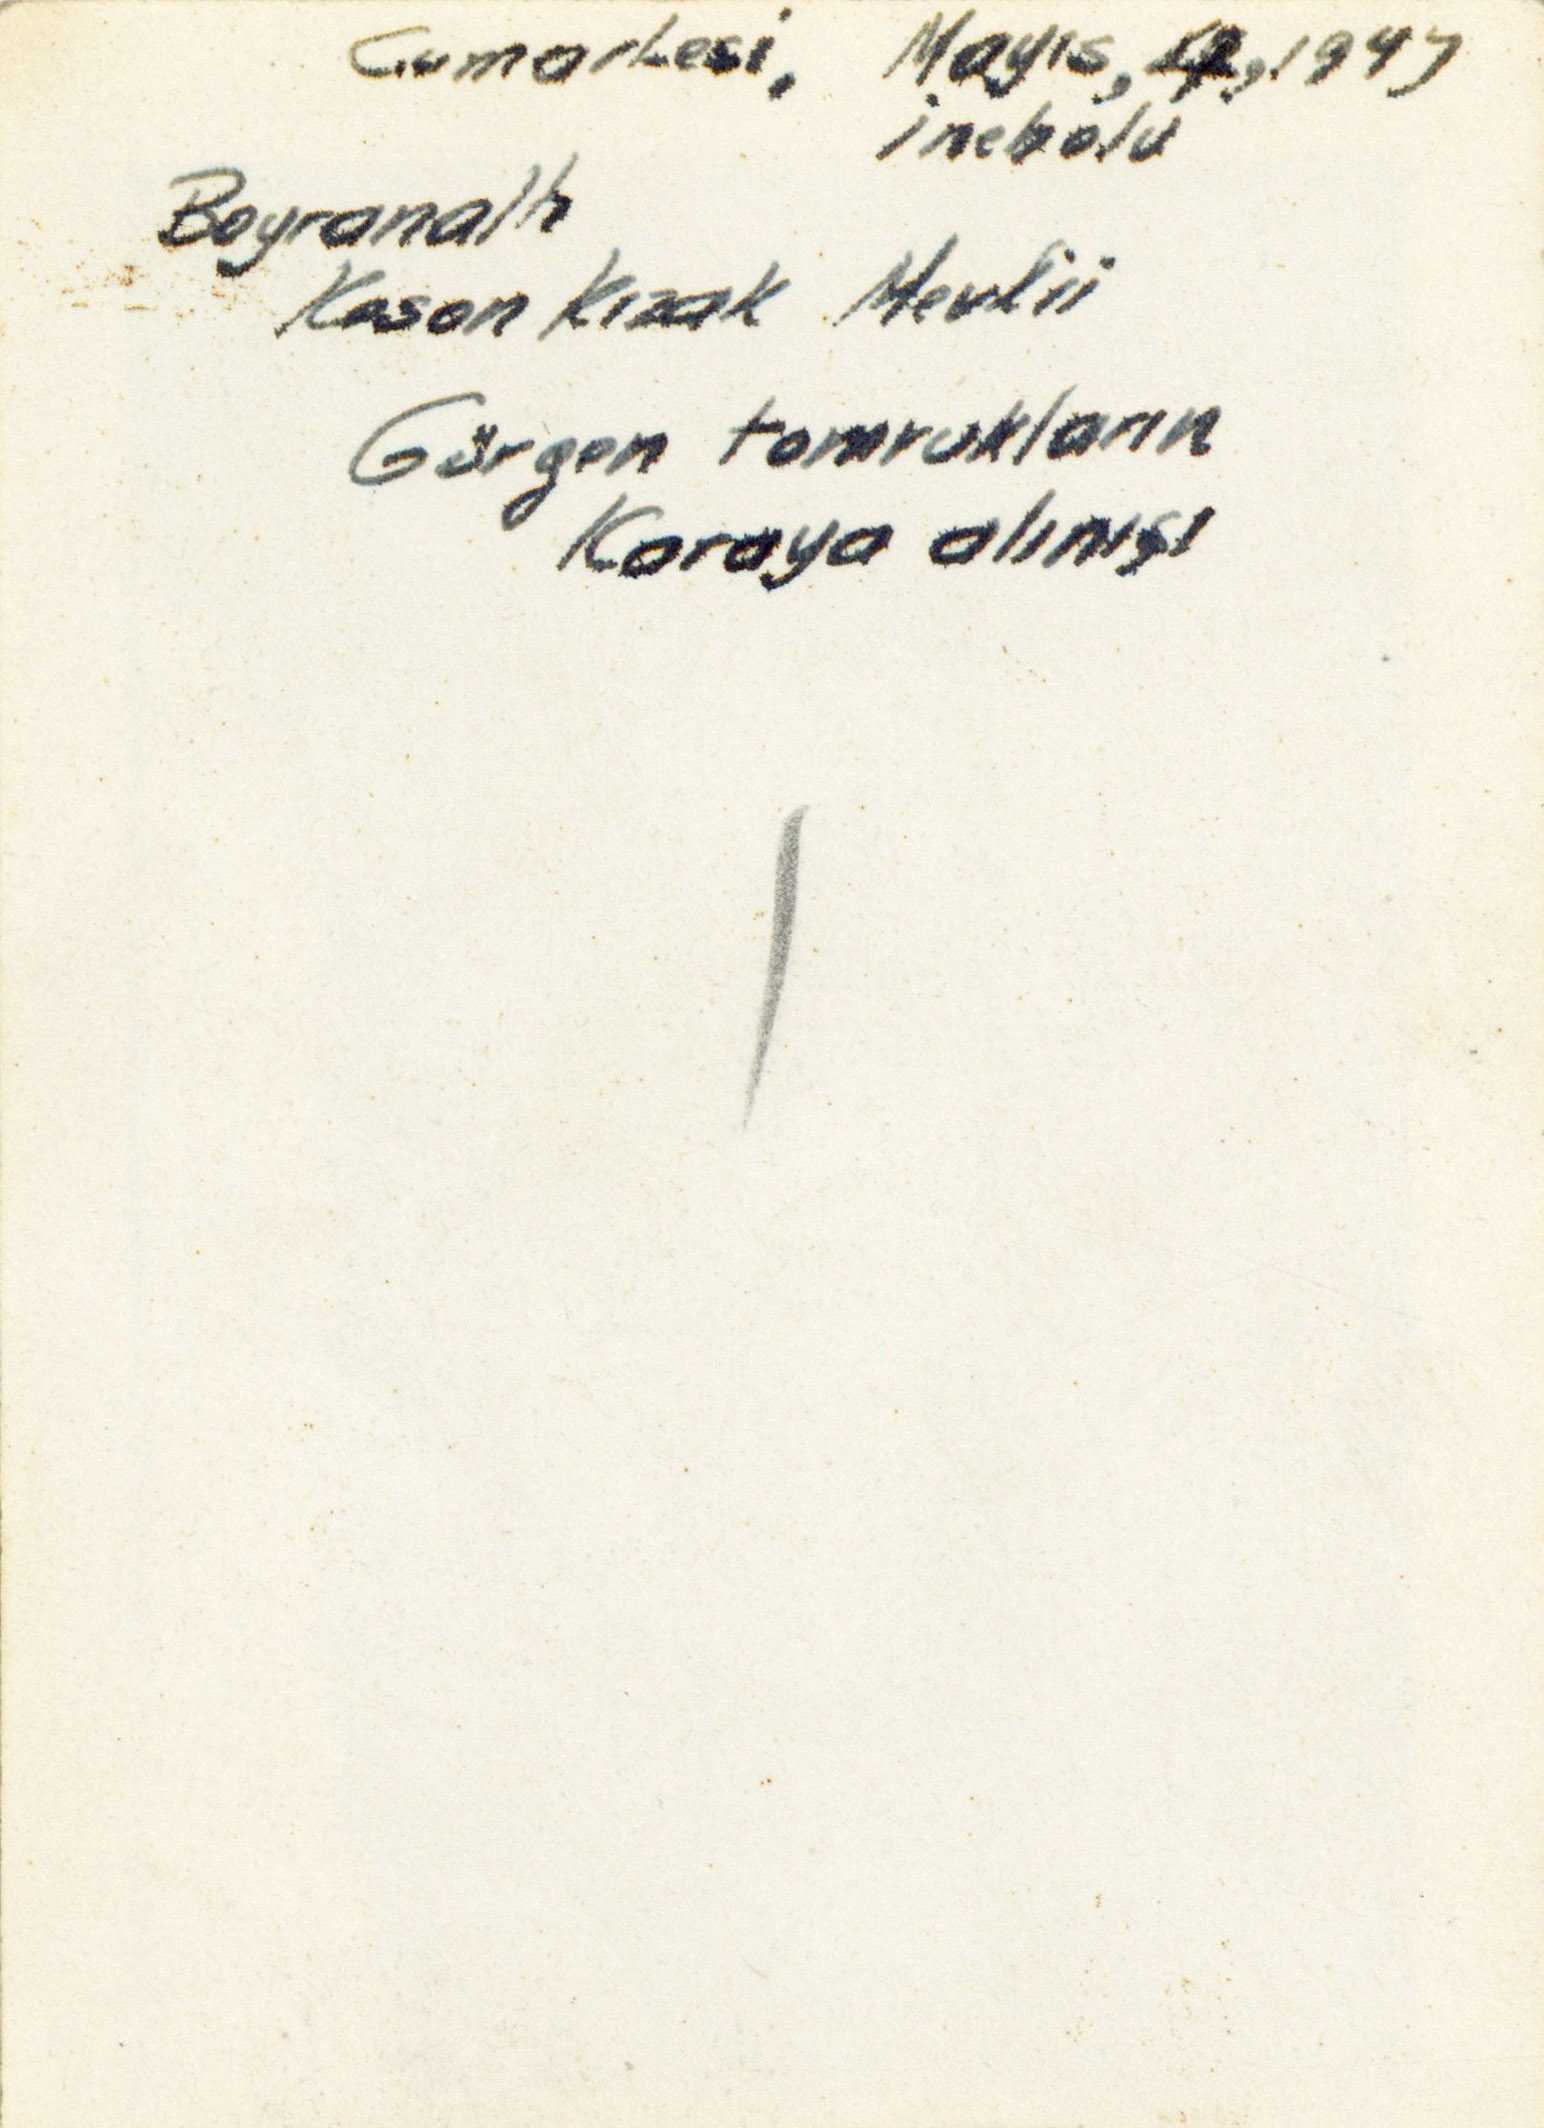 Cumartesi, Mayıs, 1947
inebolu
Bayranaltı
Kason Kızak Mevkii
Gürgen tomrukların
Karaya alınışı